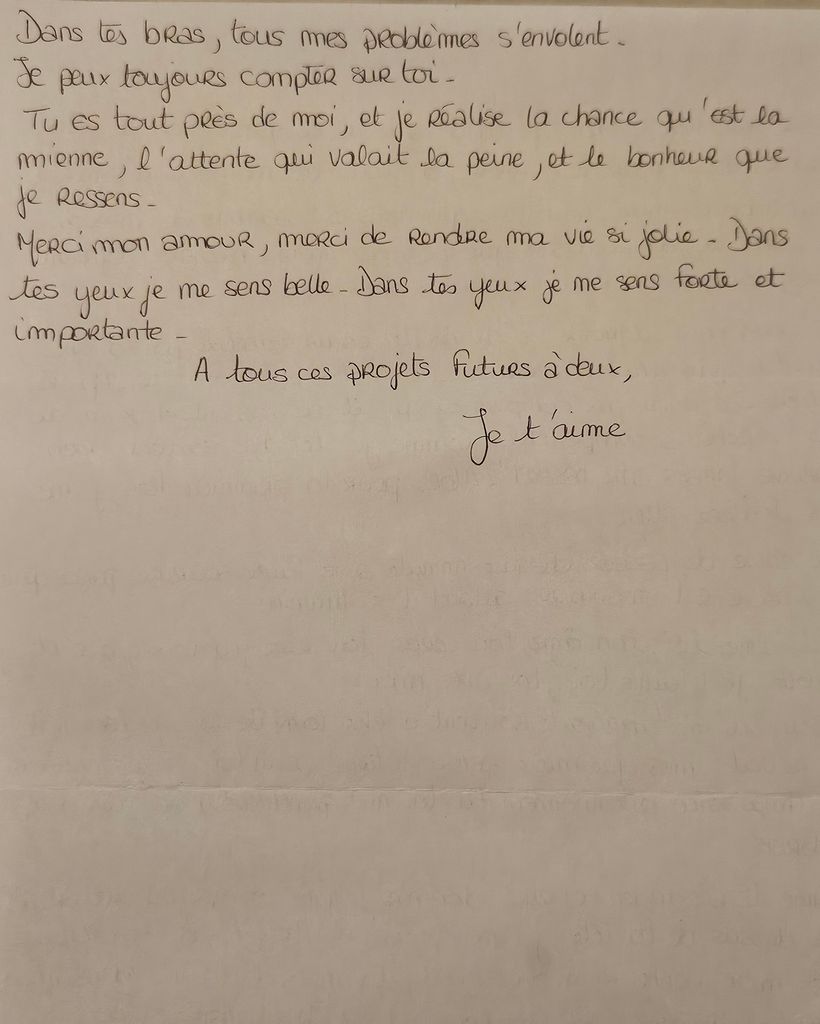 Dans tes bras, tous mes problèmes s'envolent.
Je peux toujours compter sur toi.
Tu es tout près de moi, et je réalise la chance qu'est la
mienne, l'attente qui valait la peine, et le bonheur que
je ressens.
Merci mon amour, merci de rendre ma vie si jolie. Dans
tes yeux je me sens belle. Dans tes yeux je me sens forte et
importante.
A tous ces projets futurs à deux,
Je t'aime